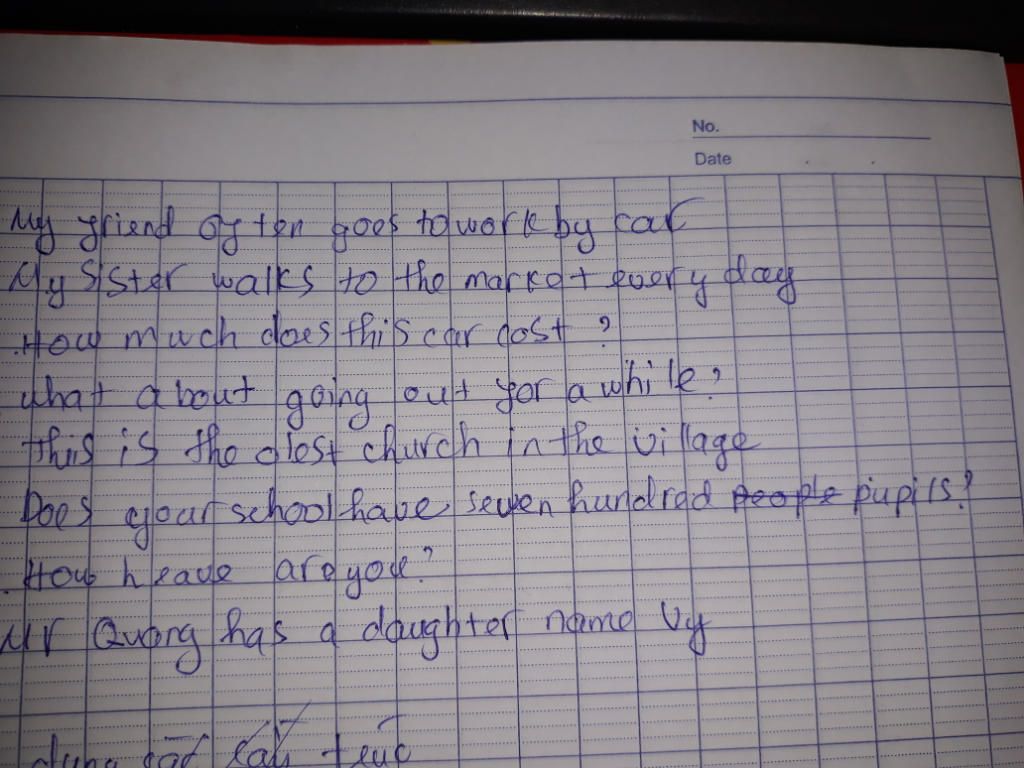 No.
Date
My friend often goes to work by car
My sister walks to the market every day
How much does this car cost ?
what about going out for a while?
This is the olest church in the village
Does your school have seven hundred people pupils?
How heave are you?
Mr Quang has a daughter name Vy